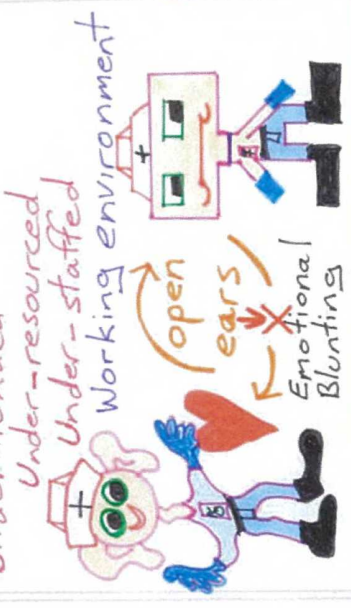 Under-resourced
Under-staffed
Working environment
open
ears
Emotional
Blunting